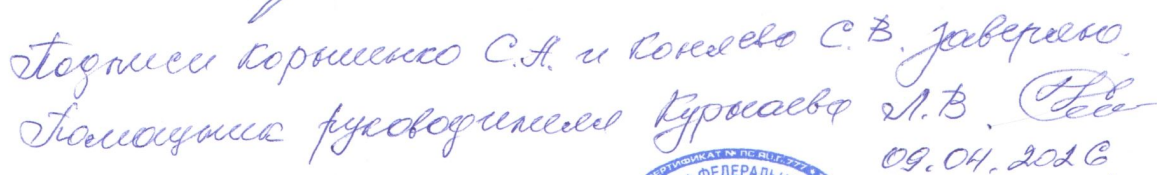 Подписи Корышенко С.А. и Коняева С.В. заверяю.
Помощник руководителя Курмаева Л.В.
09.04.2026
СЕРТИФИКАТ № ПС.RU.Г.777
ФЕДЕРАЛЬ